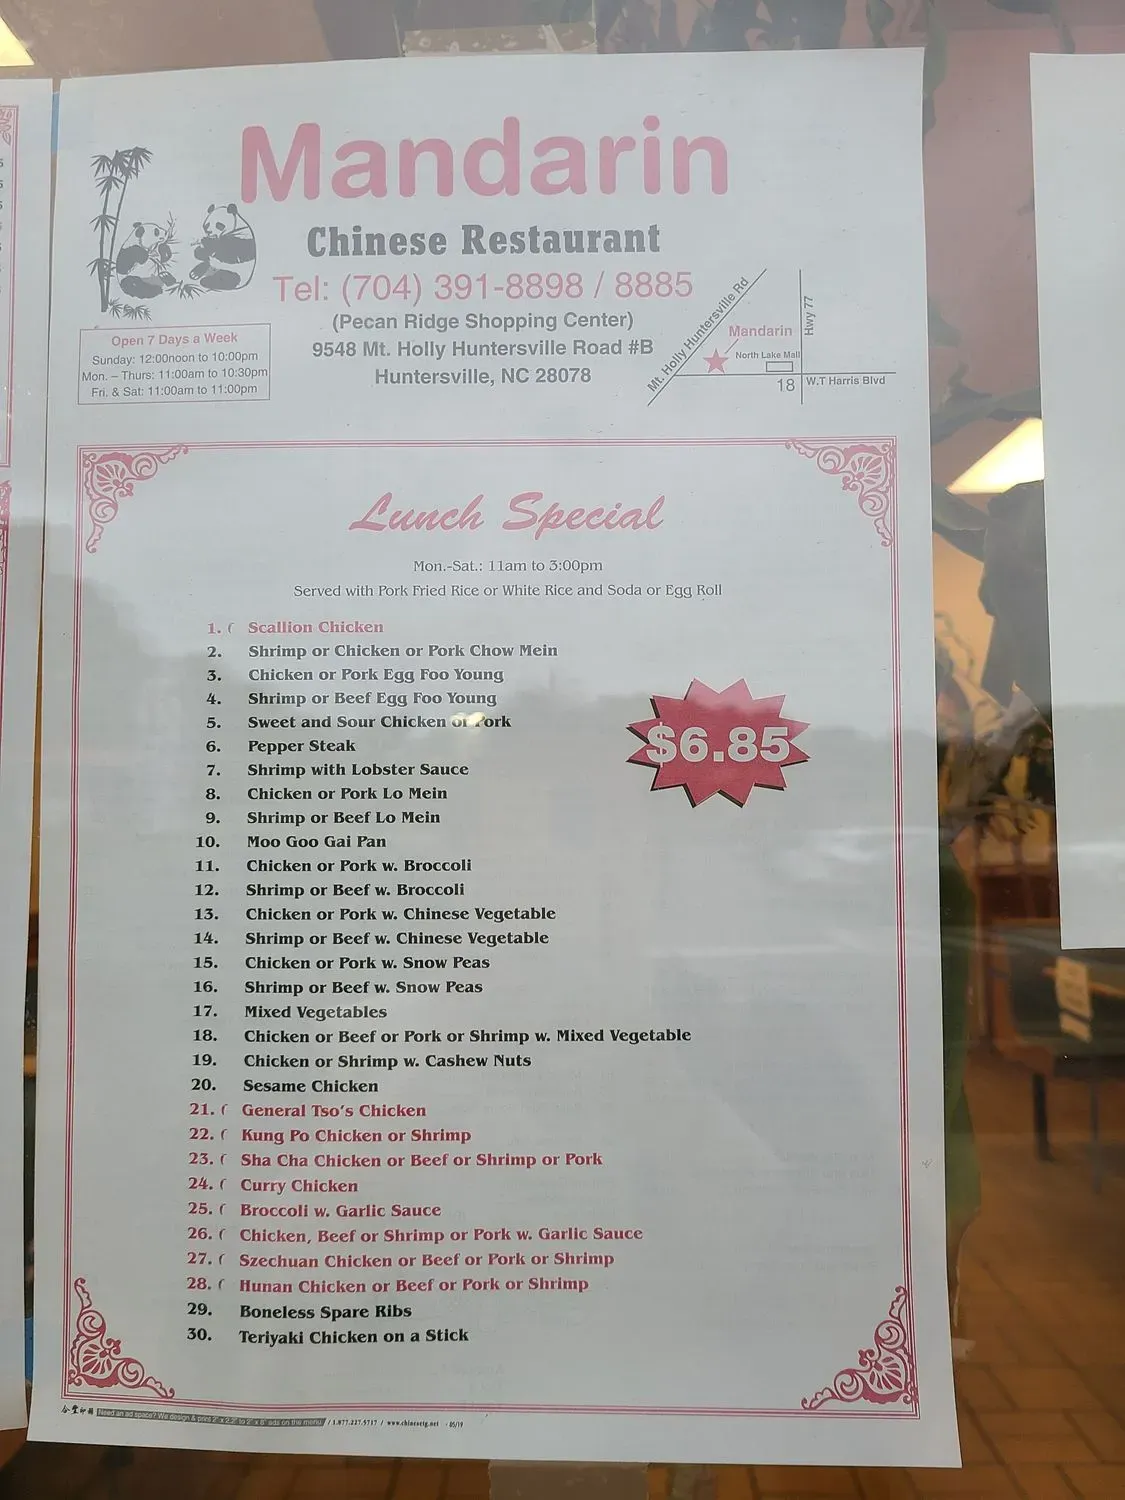 Mandarin
Chinese Restaurant
Tel: (704) 391-8898 / 8885
(Pecan Ridge Shopping Center)
9548 Mt. Holly Huntersville Road #B
Huntersville, NC 28078
Open 7 Days a Week
Sunday: 12:00noon to 10:00pm
Mon. – Thurs: 11:00am to 10:30pm
Fri. & Sat: 11:00am to 11:00pm
Mt. Holly Huntersville Rd
Hwy 77
Mandarin
North Lake Mall
18
W.T Harris Blvd
Lunch Special
Mon.-Sat.: 11am to 3:00pm
Served with Pork Fried Rice or White Rice and Soda or Egg Roll
1. Scallion Chicken
2. Shrimp or Chicken or Pork Chow Mein
3. Chicken or Pork Egg Foo Young
4. Shrimp or Beef Egg Foo Young
5. Sweet and Sour Chicken or Pork
6. Pepper Steak
7. Shrimp with Lobster Sauce
8. Chicken or Pork Lo Mein
9. Shrimp or Beef Lo Mein
10. Moo Goo Gai Pan
11. Chicken or Pork w. Broccoli
12. Shrimp or Beef w. Broccoli
13. Chicken or Pork w. Chinese Vegetable
14. Shrimp or Beef w. Chinese Vegetable
15. Chicken or Pork w. Snow Peas
16. Shrimp or Beef w. Snow Peas
17. Mixed Vegetables
18. Chicken or Beef or Pork or Shrimp w. Mixed Vegetable
19. Chicken or Shrimp w. Cashew Nuts
20. Sesame Chicken
21. General Tso's Chicken
22. Kung Po Chicken or Shrimp
23. Sha Cha Chicken or Beef or Shrimp or Pork
24. Curry Chicken
25. Broccoli w. Garlic Sauce
26. Chicken, Beef or Shrimp or Pork w. Garlic Sauce
27. Szechuan Chicken or Beef or Pork or Shrimp
28. Hunan Chicken or Beef or Pork or Shrimp
29. Boneless Spare Ribs
30. Teriyaki Chicken on a Stick
$6.85
Need an ad space? We design & print 2" x 2.2" to 2" x 8" ads on the menu. / 1.877.227.5717 / www.chinesetg.net · 05/19